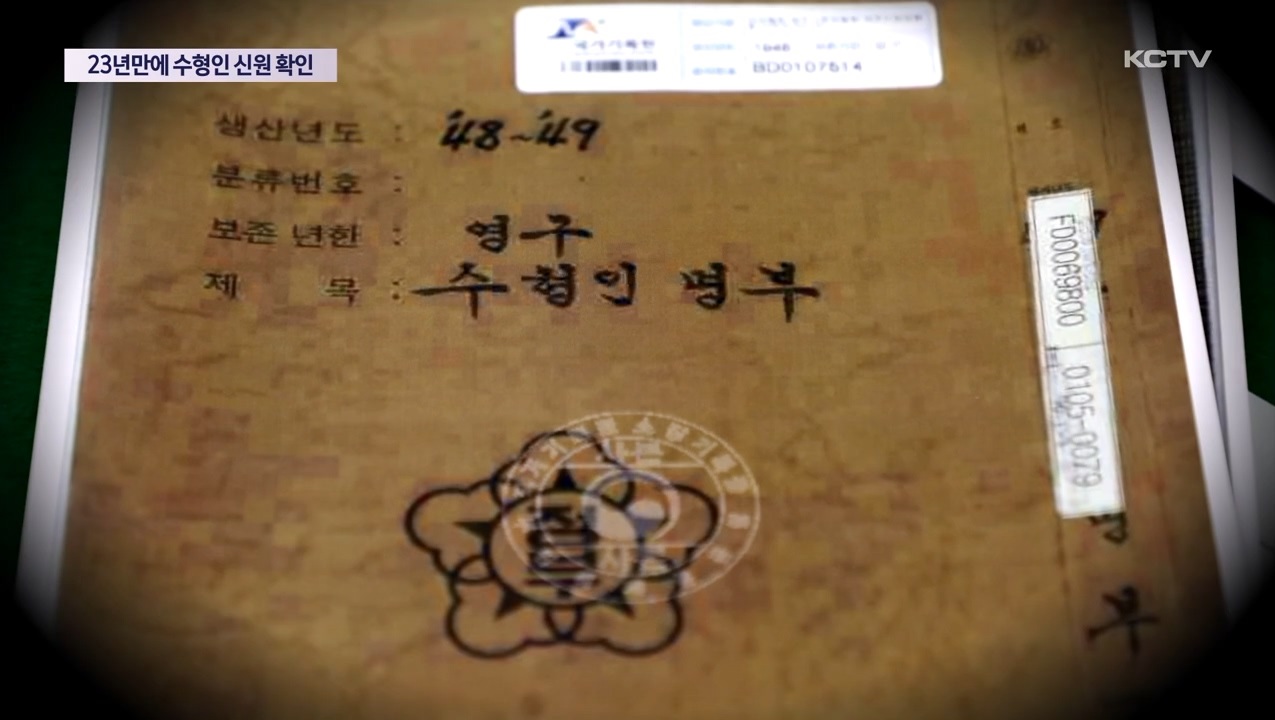 23년만에 수형인 신원 확인
KCTV
국가기록원
BD0107514
생산년도 : '48~'49
분류번호 :
보존 년한 : 영구
제 목 : 수형인 명부
정부
FD0069800
0105-0079
명
부